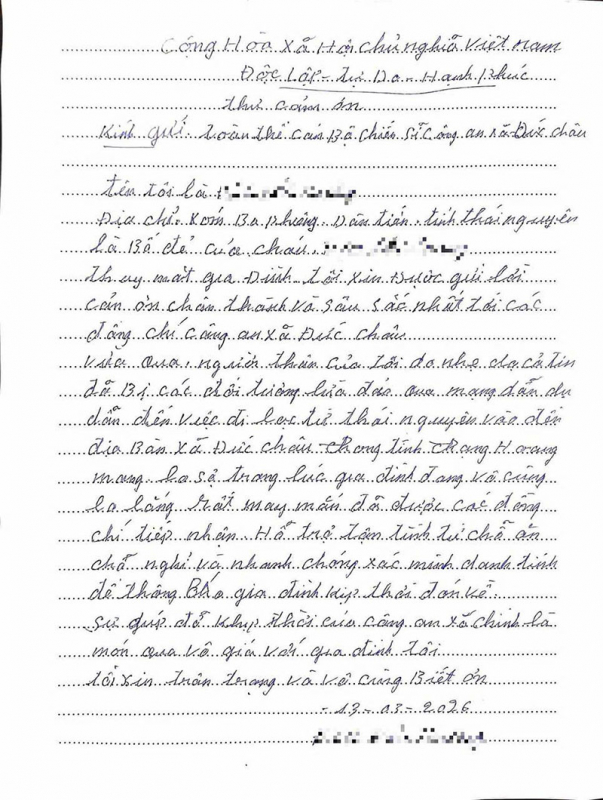 Cộng Hòa Xã Hội chủ nghĩa Việt nam
Độc Lập - Tự Do - Hạnh Phúc
thư cảm ơn
Kính gửi: toàn thể cán Bộ chiến sĩ công an xã Đức châu
tên tôi là
Địa chỉ: xóm Ba Phường. Dân tiến. tỉnh thái nguyên
là Bố đẻ của cháu.
thay mặt gia Đình tôi xin Được gửi lời
cản ơn chân thành và sâu sắc nhất tới các
đồng chí công an xã Đức châu
vừa qua. người thân của tôi do nhẹ dạ cả tin
đã Bị các đối tượng lừa đảo qua mạng dẫn dụ
dẫn đến việc đi lạc từ thái nguyên vào đến
địa Bàn xã Đức châu - trong tình trạng Hoang
mang lo sợ trong lúc gia đình đang vô cùng
lo lắng rất may mắn đã được các đồng
chí tiếp nhận. Hỗ trợ tận tình từ chỗ ăn
chỗ nghỉ và nhanh chóng xác minh danh tính
để thông Báo gia đình kịp thời đón về.
sự giúp đỡ kịp thời của công an xã chính là
món quà vô giá với gia đình tôi
tôi xin trân trọng và vô cùng Biết ơn
13-03-2026